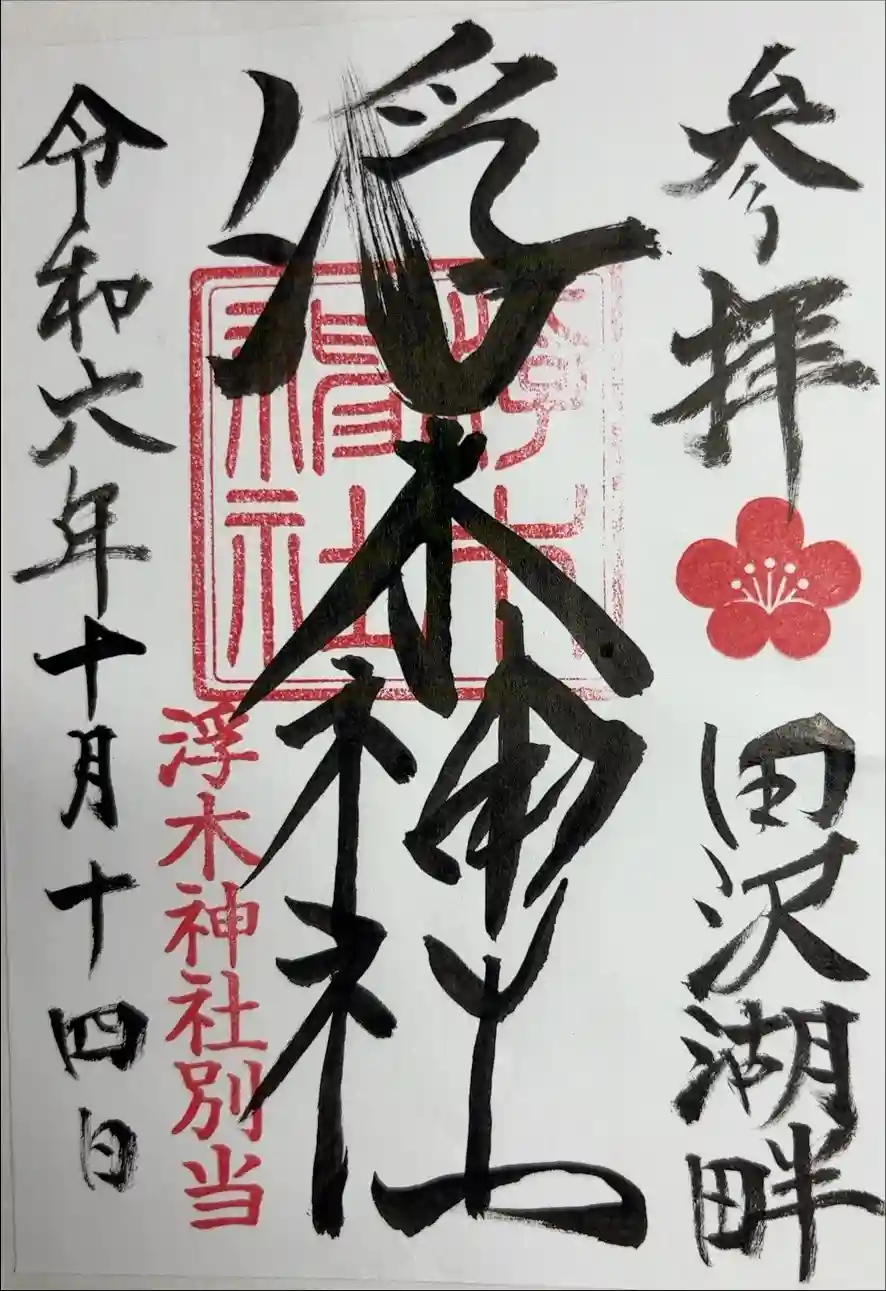 参拝
田沢湖畔
浮木神社
浮木神社
浮木神社別当
令和六年十月十四日